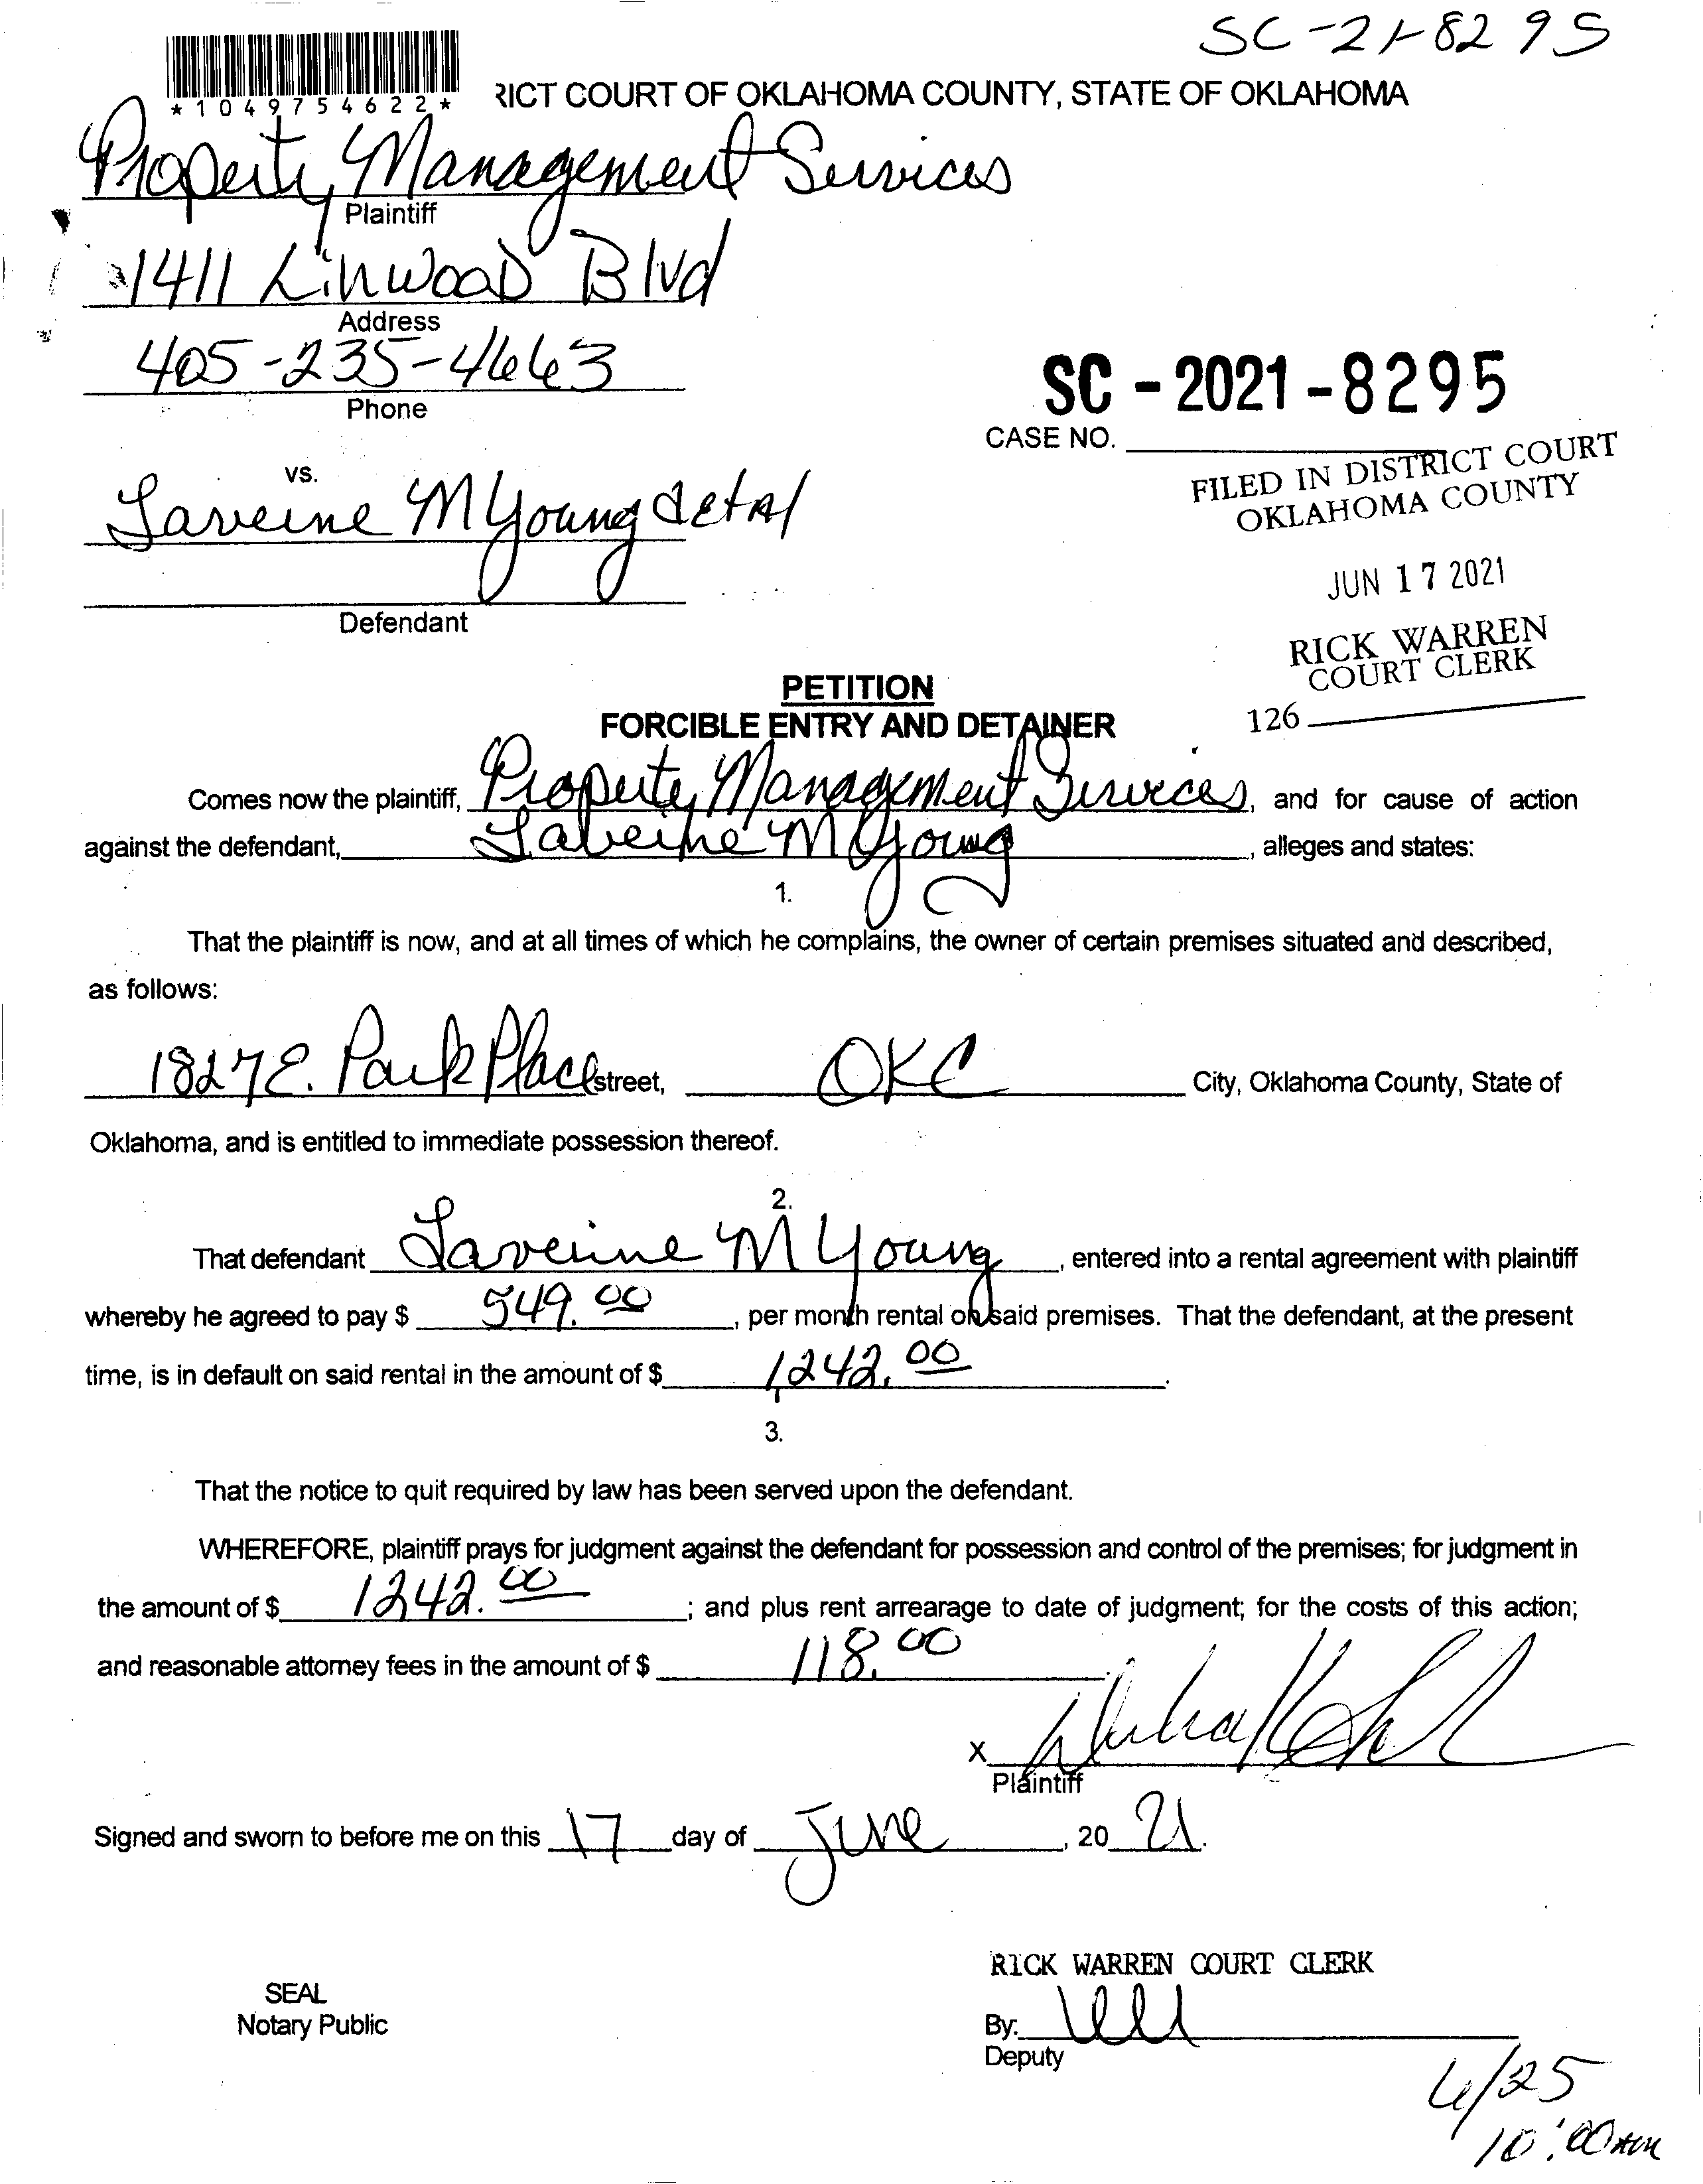 SC-21-8295
*1049754622*
RICT COURT OF OKLAHOMA COUNTY, STATE OF OKLAHOMA
Property Management Services
Plaintiff
1411 Linwood Blvd
Address
405-235-4663
Phone
SC-2021-8295
CASE NO.
vs.
FILED IN DISTRICT COURT
OKLAHOMA COUNTY
Laverne M Young etal
JUN 17 2021
Defendant
RICK WARREN
COURT CLERK
126
PETITION
FORCIBLE ENTRY AND DETAINER
Comes now the plaintiff, Property Management Services, and for cause of action
against the defendant, Laverne M Young, alleges and states:
1.
That the plaintiff is now, and at all times of which he complains, the owner of certain premises situated and described,
as follows:
1827 E. Park Place street, OKC City, Oklahoma County, State of
Oklahoma, and is entitled to immediate possession thereof.
2.
That defendant Laverne M Young, entered into a rental agreement with plaintiff
whereby he agreed to pay $ 549.00, per month rental on said premises. That the defendant, at the present
time, is in default on said rental in the amount of $ 1242.00.
3.
That the notice to quit required by law has been served upon the defendant.
WHEREFORE, plaintiff prays for judgment against the defendant for possession and control of the premises; for judgment in
the amount of $ 1242.00; and plus rent arrearage to date of judgment; for the costs of this action;
and reasonable attorney fees in the amount of $ 118.00
X
Plaintiff
Signed and sworn to before me on this 17 day of June, 20 21.
RICK WARREN COURT CLERK
SEAL
Notary Public
By:
Deputy
6/25
10:00am